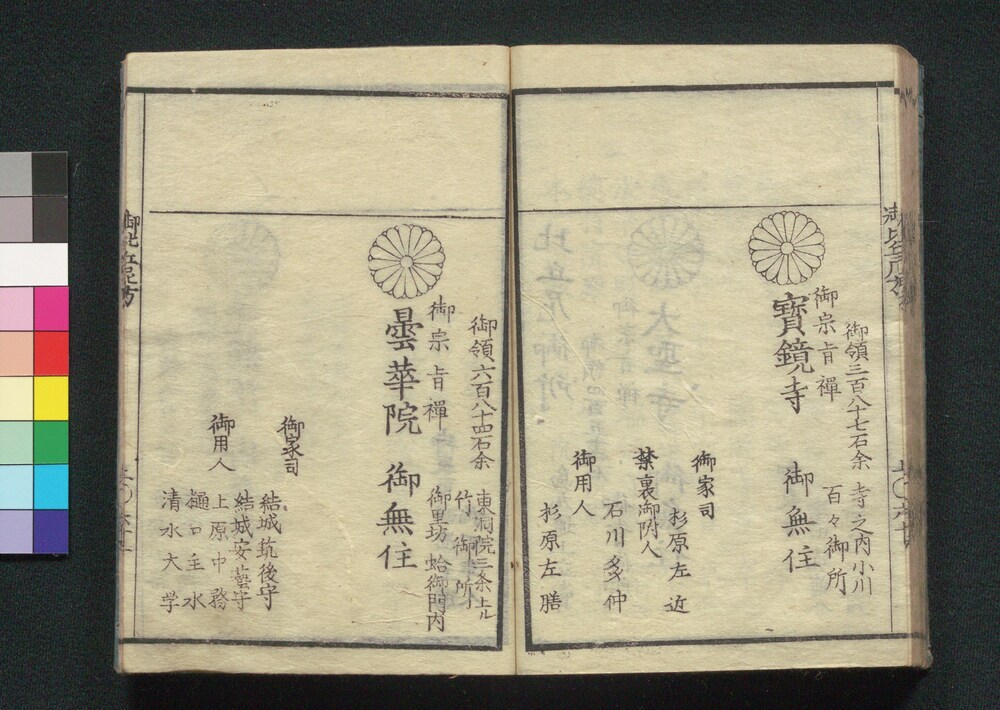 御比丘尼方
御領三百八十七石余
寺之内小川
百々御所
御宗旨禪
寳鏡寺
御無住
御家司
杉原左近
禁裏御附人
石川多仲
御用人
杉原左膳
御領六百八十四石余
東洞院三条上ル
竹御所
御里坊
蛤御門内
御宗旨禪
曇華院
御無住
御家司
結城筑後守
結城安藝守
上原中務
御用人
樋口主水
清水大学
御比丘尼方